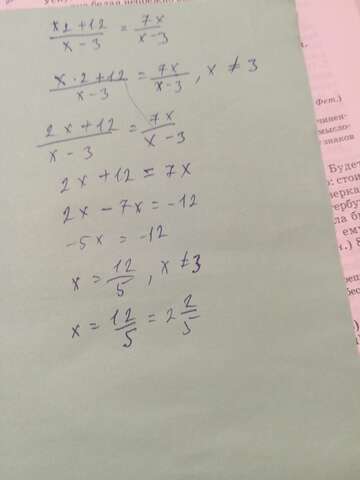 x2+12/x-3 = 7x/x-3
x·2+12/x-3 = 7x/x-3, x≠3
2x+12/x-3 = 7x/x-3
2x+12=7x
2x-7x=-12
-5x=-12
x=12/5, x≠3
x=12/5=2 2/5
Фет.)
чинен-
мысло-
знаков
Будет
ему